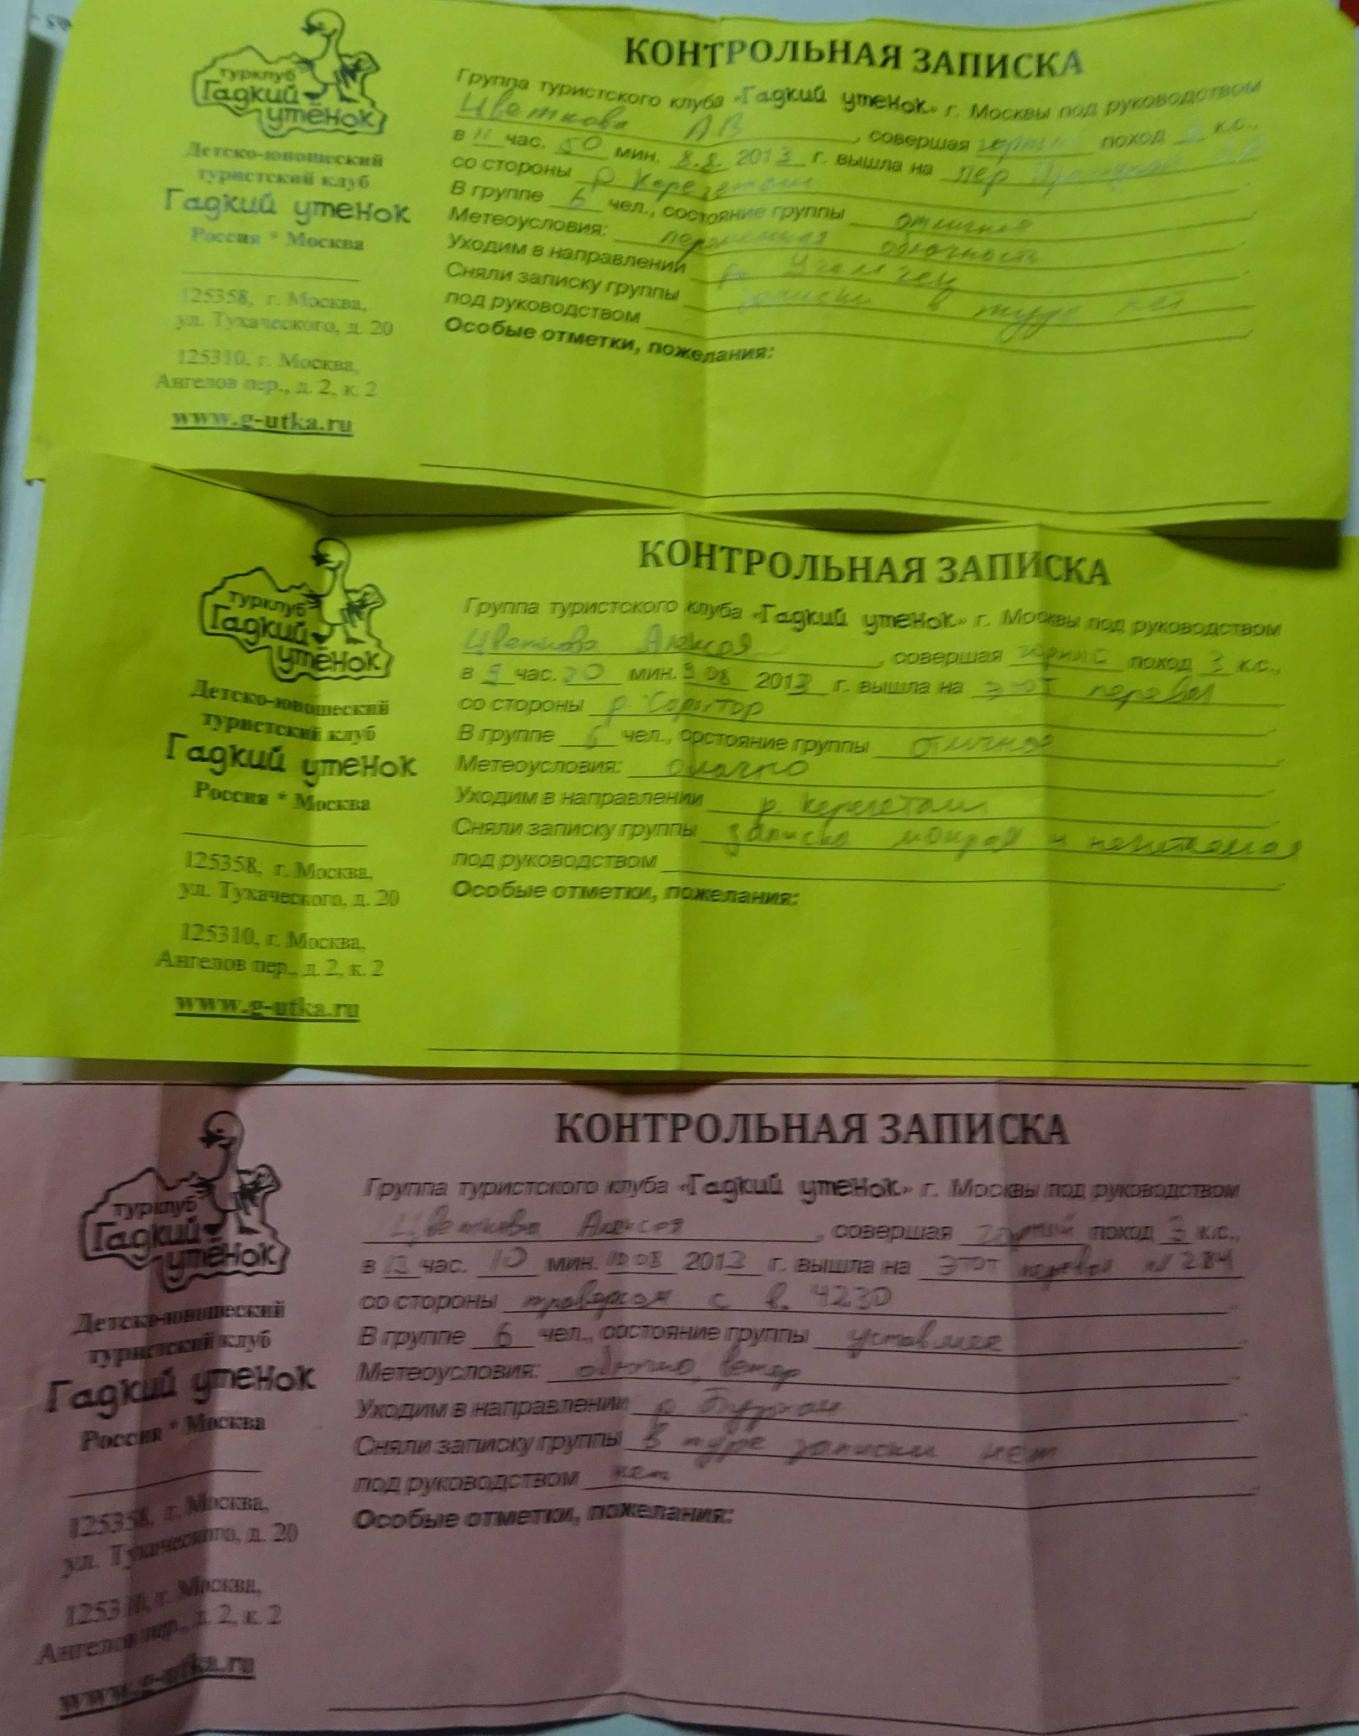 турклуб
Гадкий
утёнок
Детско-юношеский
туристский клуб
Гадкий утенок
Россия * Москва
125358, г. Москва,
ул. Тухаческого, д. 20
125310, г. Москва,
Ангелов пер., д. 2, к. 2
www.g-utka.ru
КОНТРОЛЬНАЯ ЗАПИСКА
Группа туристского клуба «Гадкий утенок» г. Москвы под руководством
Цветкова АВ, совершая горный поход 3 к.с.,
в 11 час. 50 мин. 8.8 2013 г. вышла на пер
со стороны р
В группе 6 чел., состояние группы отличное
Метеоусловия: переменная облачность
Уходим в направлении р.
Сняли записку группы записки в туре нет
под руководством
Особые отметки, пожелания:
турклуб
Гадкий
утёнок
Детско-юношеский
туристский клуб
Гадкий утенок
Россия * Москва
125358, г. Москва,
ул. Тухаческого, д. 20
125310, г. Москва,
Ангелов пер., д. 2, к. 2
www.g-utka.ru
КОНТРОЛЬНАЯ ЗАПИСКА
Группа туристского клуба «Гадкий утенок» г. Москвы под руководством
Цветкова Алексея, совершая горный поход 3 к.с.,
в 9 час. мин. 9 08 2013 г. вышла на этот перевал
со стороны р.
В группе 6 чел., состояние группы отличное
Метеоусловия: облачно
Уходим в направлении р.
Сняли записку группы записка мокрая и нечитаемая
под руководством
Особые отметки, пожелания:
турклуб
Гадкий
утёнок
Детско-юношеский
туристский клуб
Гадкий утенок
Россия * Москва
125358, г. Москва,
ул. Тухаческого, д. 20
125310, г. Москва,
Ангелов пер., д. 2, к. 2
www.g-utka.ru
КОНТРОЛЬНАЯ ЗАПИСКА
Группа туристского клуба «Гадкий утенок» г. Москвы под руководством
Цветкова Алексея, совершая горный поход 3 к.с.,
в 13 час. 10 мин. 10 08 2013 г. вышла на этот перевал № 284
со стороны траверсом с в. 4230
В группе 6 чел., состояние группы уставшее
Метеоусловия: облачно, ветер
Уходим в направлении р
Сняли записку группы в туре записки нет
под руководством нет
Особые отметки, пожелания: